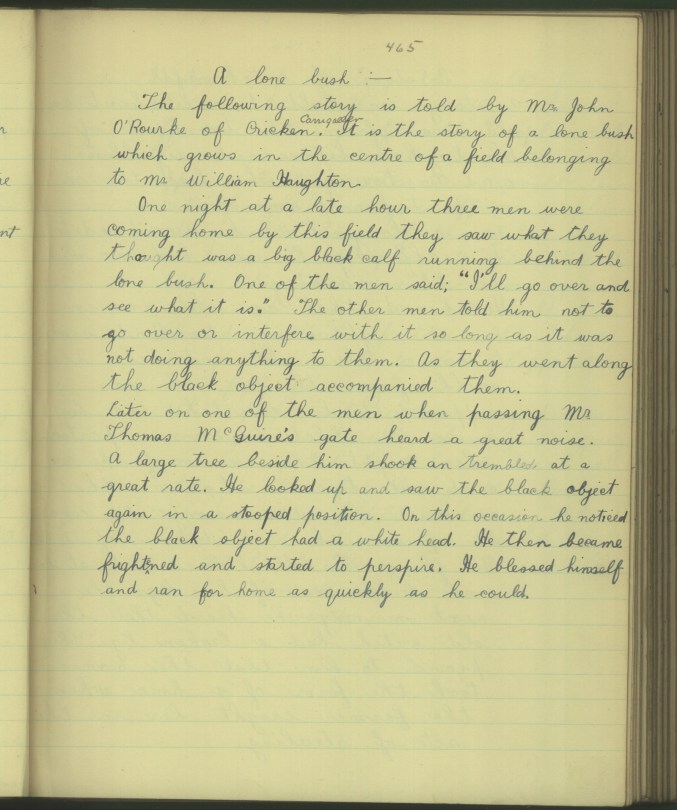 465
A lone bush :—
The following story is told by Mr John
O'Rourke of Cricken. It is the story of a lone bush
which grows in the centre of a field belonging
to Mr William Haughton.
One night at a late hour three men were
coming home by this field they saw what they
thought was a big black calf running behind the
lone bush. One of the men said; "I'll go over and
see what it is." The other men told him not to
go over or interfere with it so long as it was
not doing anything to them. As they went along
the black object accompanied them.
Later on one of the men when passing Mr
Thomas McGuire's gate heard a great noise.
A large tree beside him shook an trembled at a
great rate. He looked up and saw the black object
again in a stooped position. On this occasion he noticed
the black object had a white head. He then became
frightned and started to perspire. He blessed himself
and ran for home as quickly as he could.